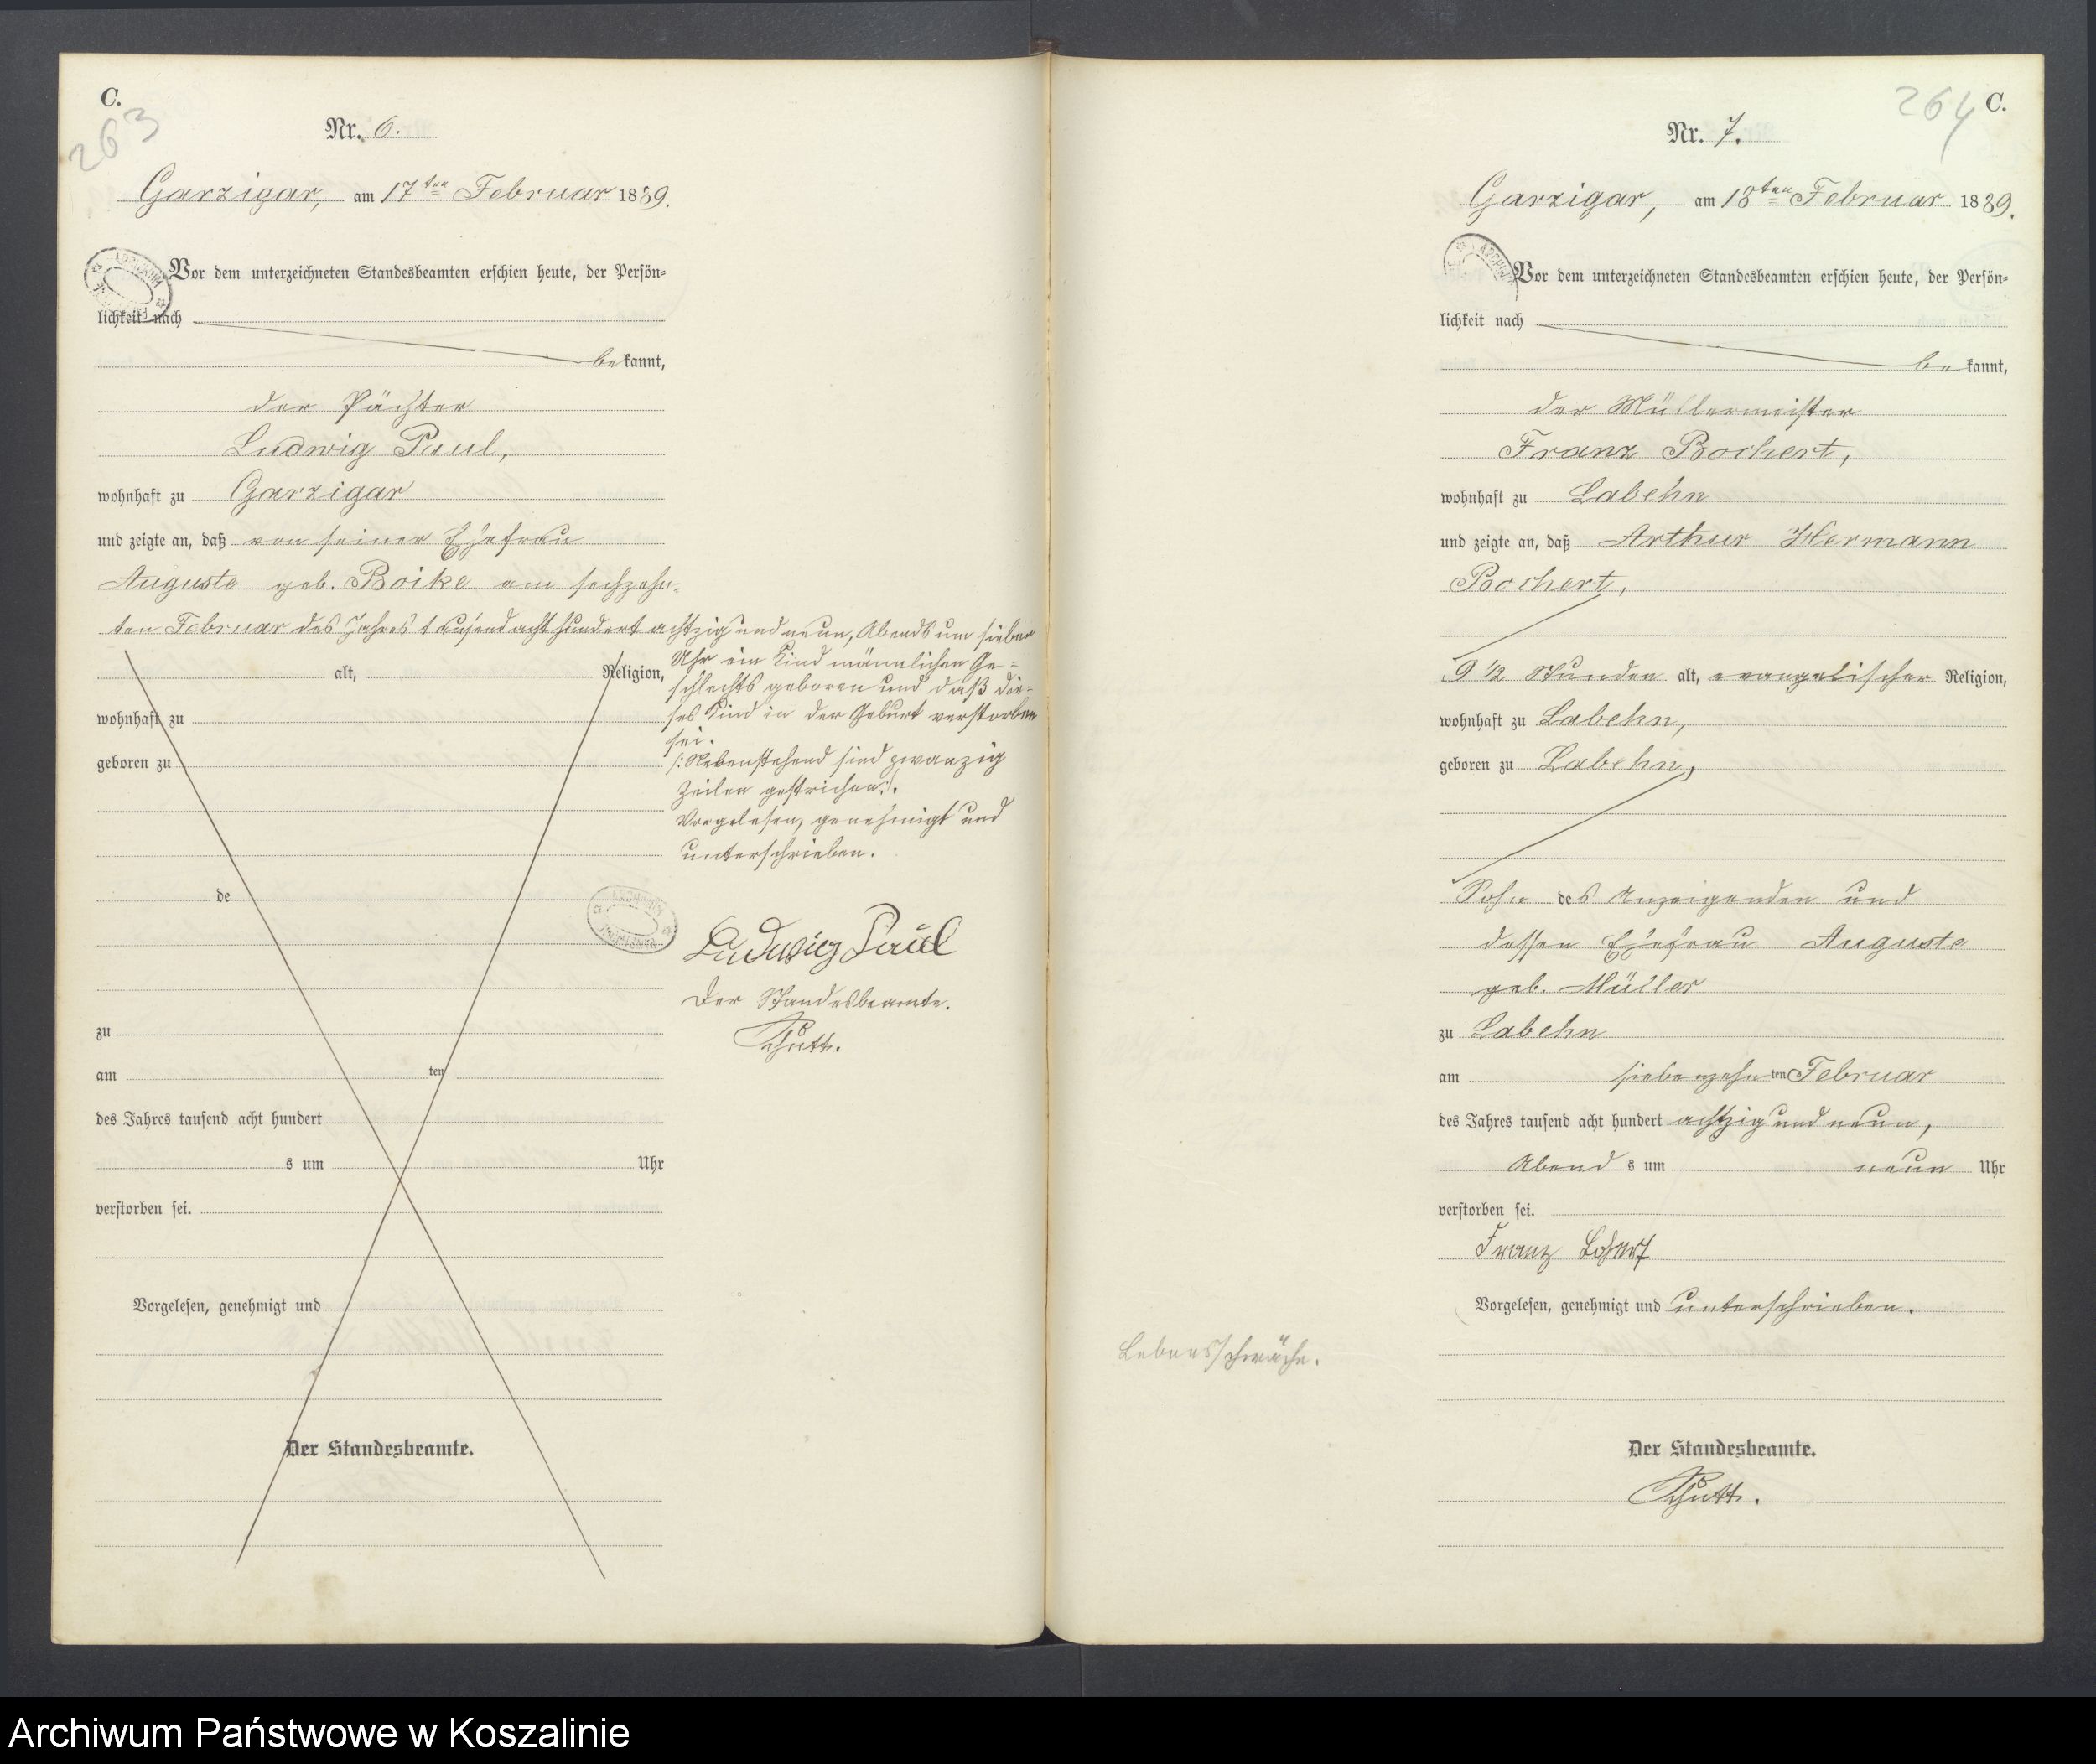 C.
263
Nr. 6.
Garzigar, am 17ten Februar 1889.
Vor dem unterzeichneten Standesbeamten erschien heute, der Persön-
lichkeit nach
bekannt,
der Pächter
Ludwig Paul,
wohnhaft zu Garzigar
und zeigte an, daß von seiner Ehefrau
Auguste geb. Boike am sechzehn-
ten Februar des Jahres tausend acht hundert achtzig und neun, Abends um sieben
Uhr ein Kind männlichen Ge-
schlechts geboren und daß die-
ses Kind in der Geburt verstorben
sei.
/: Nebenstehend sind zwanzig
Zeilen gestrichen. :/
Vorgelesen, genehmigt und
unterschrieben.
Ludwig Paul
Der Standesbeamte.
alt, Religion,
wohnhaft zu
geboren zu
de
zu
am ten
des Jahres tausend acht hundert
s um Uhr
verstorben sei.
Vorgelesen, genehmigt und
Der Standesbeamte.
264 C.
Nr. 7.
Garzigar, am 18ten Februar 1889.
Vor dem unterzeichneten Standesbeamten erschien heute, der Persön-
lichkeit nach
bekannt,
der Müllermeister
Franz Bochert,
wohnhaft zu Labehn
und zeigte an, daß Arthur Hermann
Bochert,
9 1/2 Stunden alt, evangelischer Religion,
wohnhaft zu Labehn,
geboren zu Labehn,
Sohn des Anzeigenden und
dessen Ehefrau Auguste
geb. Müller
zu Labehn
am siebenzehnten Februar
des Jahres tausend acht hundert achtzig und neun,
Abends um neun Uhr
verstorben sei.
Franz Bochert
Vorgelesen, genehmigt und unterschrieben.
Lebensschwäche.
Der Standesbeamte.
Archiwum Państwowe w Koszalinie